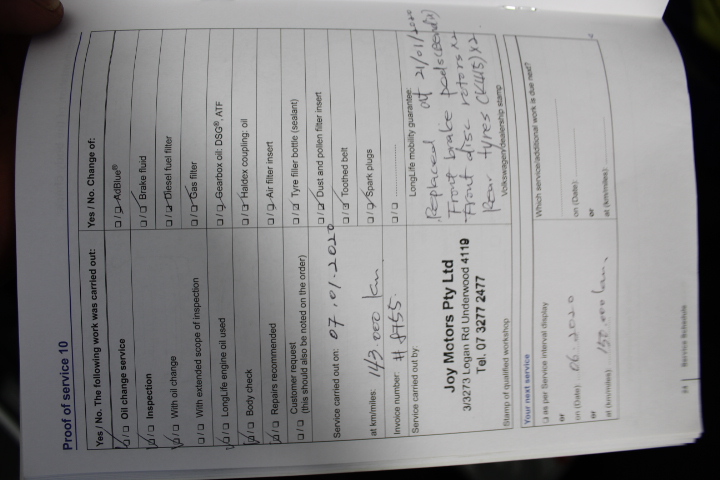 Proof of service 10
Yes / No. The following work was carried out:
Oil change service
Inspection
With oil change
With extended scope of inspection
LongLife engine oil used
Body check
Repairs recommended
Customer request
(this should also be noted on the order)
Service carried out on: 07.01.2020
at km/miles: 143.000 km
Invoice number: # 8755
Service carried out by:
Joy Motors Pty Ltd
3/3273 Logan Rd Underwood 4119
Tel. 07 3277 2477
Stamp of qualified workshop
Yes / No. Change of:
AdBlue®
Brake fluid
Diesel fuel filter
Gas filter
Gearbox oil: DSG®, ATF
Haldex coupling: oil
Air filter insert
Tyre filler bottle (sealant)
Dust and pollen filter insert
Toothed belt
Spark plugs
LongLife mobility guarantee:
Replaced at 21/01/2020
Front brake pads
Front disc rotors x2
Rear tyres x2
Volkswagen dealership stamp
Your next service
as per Service interval display
or
on (Date): 06.2020
or
at (km/miles): 158.000 km
Which service/additional work is due next?
on (Date):
or
at (km/miles):
Service Schedule